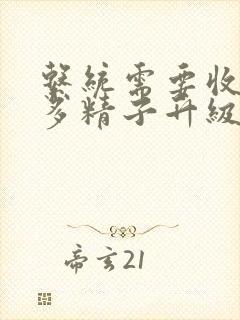 繫統需要收
多精子升級
帝玄21